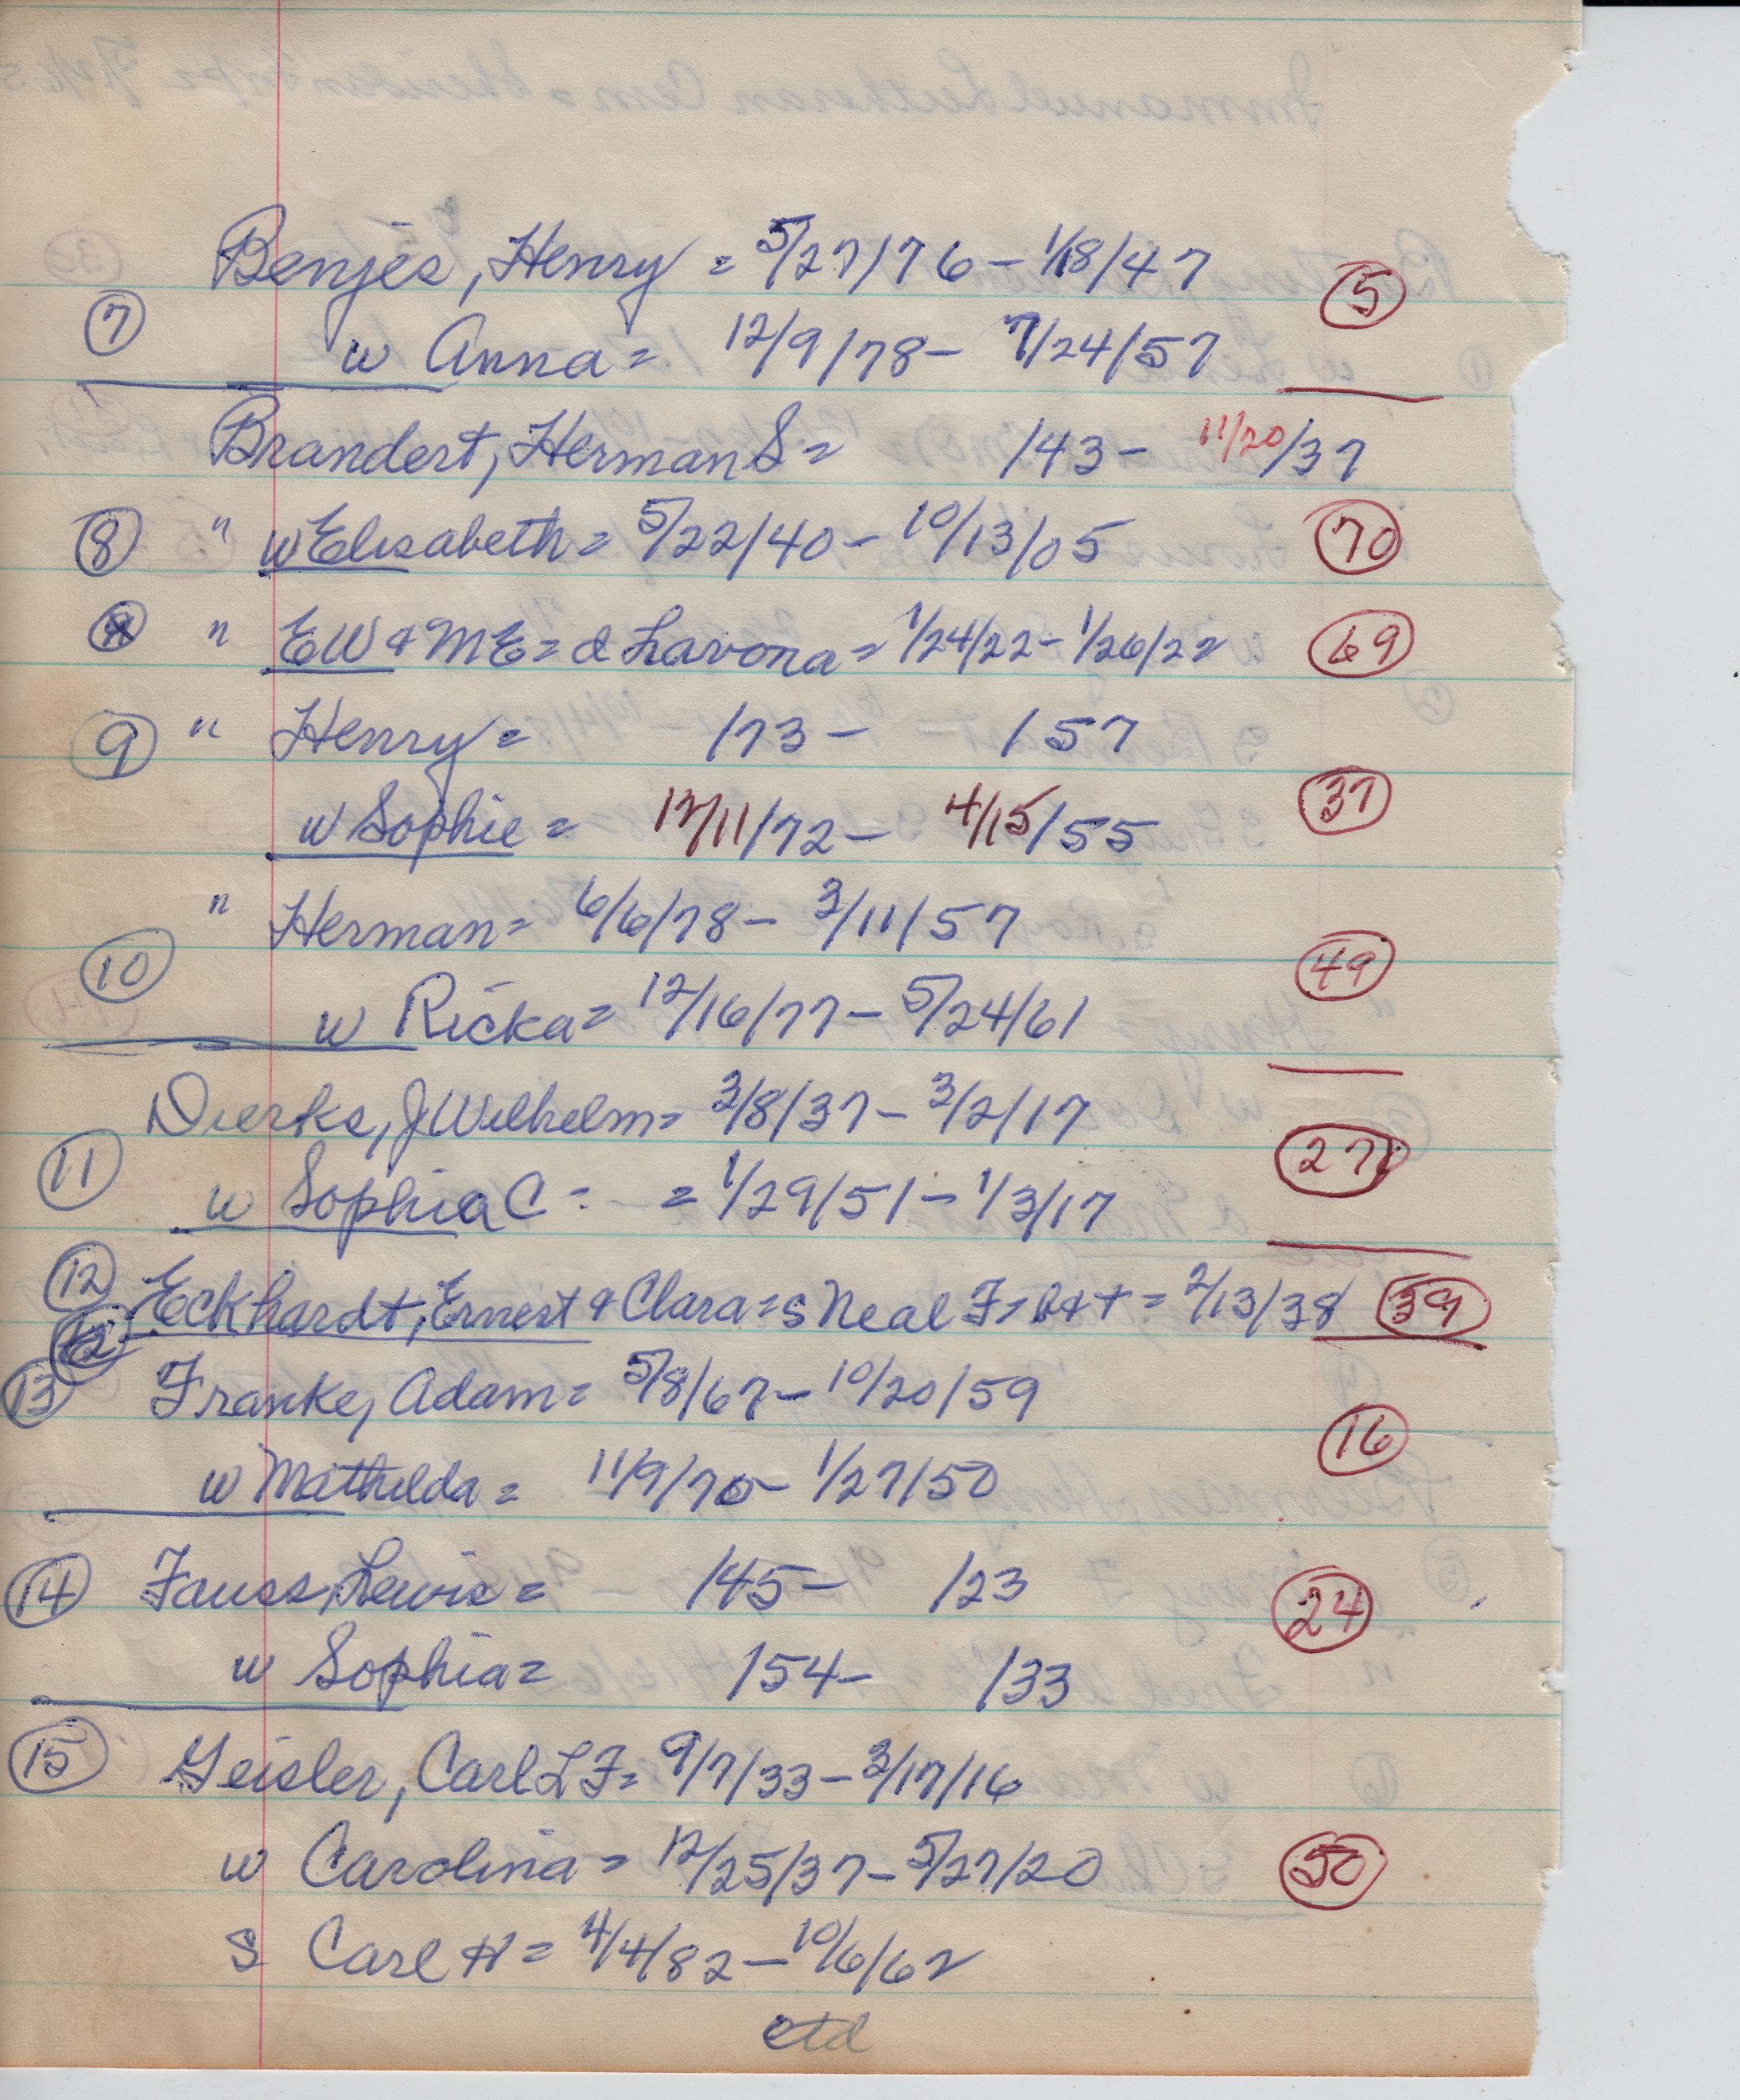 Benjes, Henry = 5/27/76 - 1/18/47
⑦ w Anna = 12/9/78 - 7/24/57 ⑤
Brandert, Herman S = /43 - 11/20/37
⑧ " w Elisabeth = 5/22/40 - 10/13/05 70
" EW & ME = d Lavona = 1/24/22 - 1/26/22 69
⑨ " Henry = /73 - /57
w Sophie = 12/11/72 - 4/15/55 37
" Herman = 6/6/78 - 3/11/57
⑩ w Ricka = 12/16/77 - 5/24/61 49
Dierks, J Wilhelm = 3/8/37 - 3/2/17
⑪ w Sophia C = = 1/29/51 - 1/3/17 27
⑫ Eckhardt, Ernest & Clara = s Neal F = b & + = 2/13/38 39
⑬ Franke, Adam = 5/8/67 - 10/20/59
w Mathilda = 11/9/70 - 1/27/50 16
⑭ Fauss, Lewis = /45 - /23 24
w Sophia = /54 - /33
⑮ Geisler, Carl L F = 9/7/33 - 3/17/16
w Carolina = 12/25/37 - 5/27/20 50
s Carl H = 4/4/82 - 10/6/62
ctd